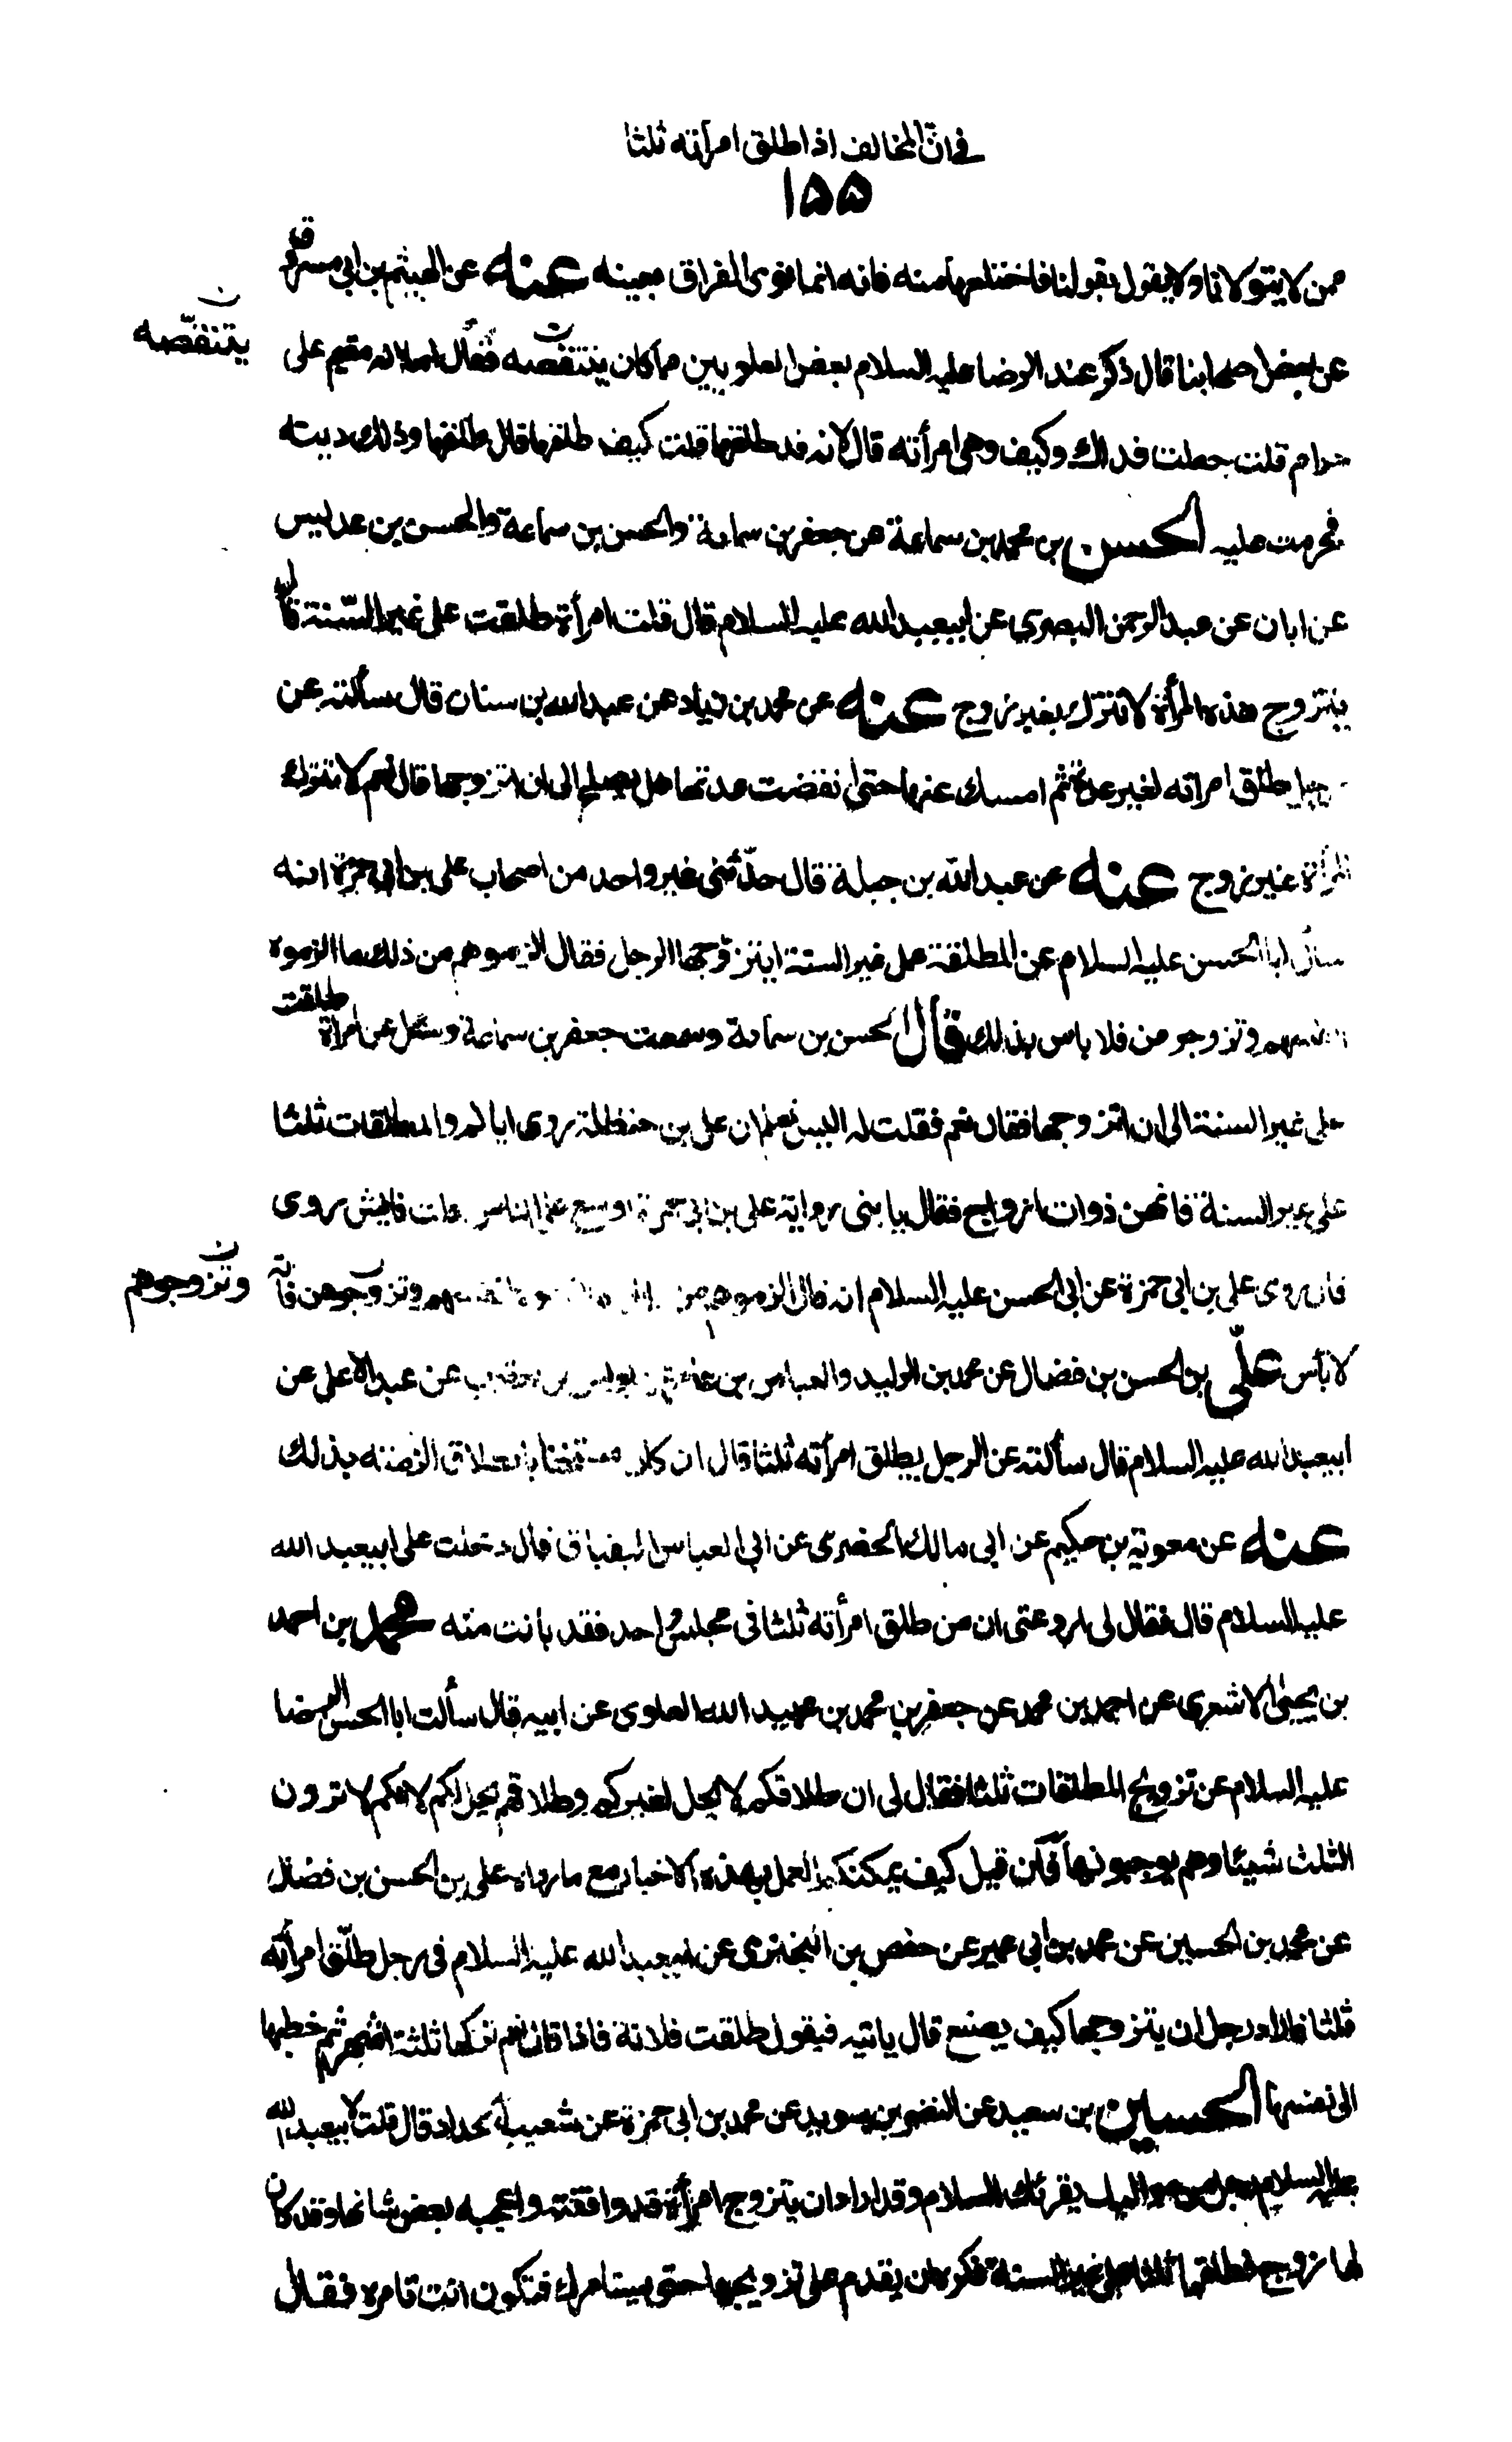 في ان المخالف اذا طلق امرأته ثلثا
١٥٥
ممن لا يتولانا ولا يقول بقولنا فاختلعها منه فانه انما نوى الفراق بعينه عنه عن الهيثم بن ابي مسروق
عن بعض اصحابنا قال ذكر عند الرضا عليه السلام بعض العلويين ممن كان ينتقصه فقال اما انه مقيم على
يتنقّصه ن
حرام قلت جعلت فداك وكيف وهي امرأته قال لانه قد طلقها قلت كيف طلقها قال طلقها وذلك دينه
فحرمت عليه الحسن بن محمد بن سماعة عن جعفر بن سماعة والحسن بن سماعة والحسن بن عديس
عن ابان عن عبد الرحمن البصري عن ابيعبد الله عليه السلام قال قلت امرأة طلقت على غير السّنة قال
يتزوج هذه المرأة لا تترك بغير زوج عنه عن محمد بن زياد عن عبد الله بن سنان قال سألته عن
رجل طلق امراته لغير عدة ثم امسك عنها حتى انقضت عدتها هل يصلح لي ان اتزوجها قال نعم لا تترك
المرأة بغير زوج عنه عن عبد الله بن جبلة قال حدّثني غير واحد من اصحاب علي بن ابي حمزة انه
سأل ابا الحسن عليه السلام عن المطلقة على غير السنة ايتزوّجها الرجل فقال الزموهم من ذلك ما الزموه
انفسهم وتزوجوهن فلا باس بذلك قال الحسن بن سماعة وسمعت جعفر بن سماعة وسئل عن امرأة طلقت
على غير السنة الي ان اتزوجها فقال نعم فقلت له اليس تعلم ان علي بن حنظلة روى اياكم والمطلقات ثلثا
على غير السنة فانهن ذوات ازواج فقال يا بني رواية علي بن ابي حمزة اوسع على الناس قلت فايش روى
قال روى علي بن ابي حمزة عن ابي الحسن عليه السلام انه قال الزموهم من انفسهم وتزوجوهن فانه
وتزوجوهم ن
لا بأس عليّ بن الحسن بن فضال عن محمد بن الوليد والعباس بن عن يونس بن يعقوب عن عبد الاعلى عن
ابيعبد الله عليه السلام قال سألته عن الرجل يطلق امرأته ثلثا قال ان كان مستخفا بالطلاق الزمته بذلك
عنه عن معوية بن حكيم عن ابي مالك الحضرمي عن ابي العباس البقباق قال دخلت على ابيعبد الله
عليه السلام قال فقال لي ارو عني ان من طلق امرأته ثلثا في مجلس واحد فقد بانت منه محمد بن احمد
بن يحيى الاشعري عن احمد بن محمد عن جعفر بن محمد بن عبيد الله العلوي عن ابيه قال سألت ابا الحسن الرضا
عليه السلام عن تزويج المطلقات ثلثا فقال لي ان طلاقكم لا يحل لغيركم وطلاقهم يحل لكم لانكم لا ترون
الثلث شيئا وهم يوجبونها فان قيل كيف يمكنكم العمل بهذه الاخبار مع ما رواه علي بن الحسن بن فضال
عن محمد بن الحسين عن محمد بن ابي عمير عن حفص بن البختري عن ابيعبد الله عليه السلام في رجل طلّق امرأته
ثلثا فاراد رجل ان يتزوجها كيف يصنع قال ياتيه فيقول طلقت فلانة فاذا قال نعم تركها ثلثة اشهر ثم خطبها
الى نفسها الحسين بن سعيد عن النضر بن سويد عن محمد بن ابي حمزة عن شعيب الحداد قال قلت لابيعبد الله
عليه السلام رجل من مواليك يقرئك السلام وقد اراد ان يتزوج امرأة قد وافقته واعجبه بعض شانها وقد كان
لها زوج فطلقها ثلثا على غير السنة فكره ان يقدم على تزويجها حتى يستامرك فتكون انت تامره فقال